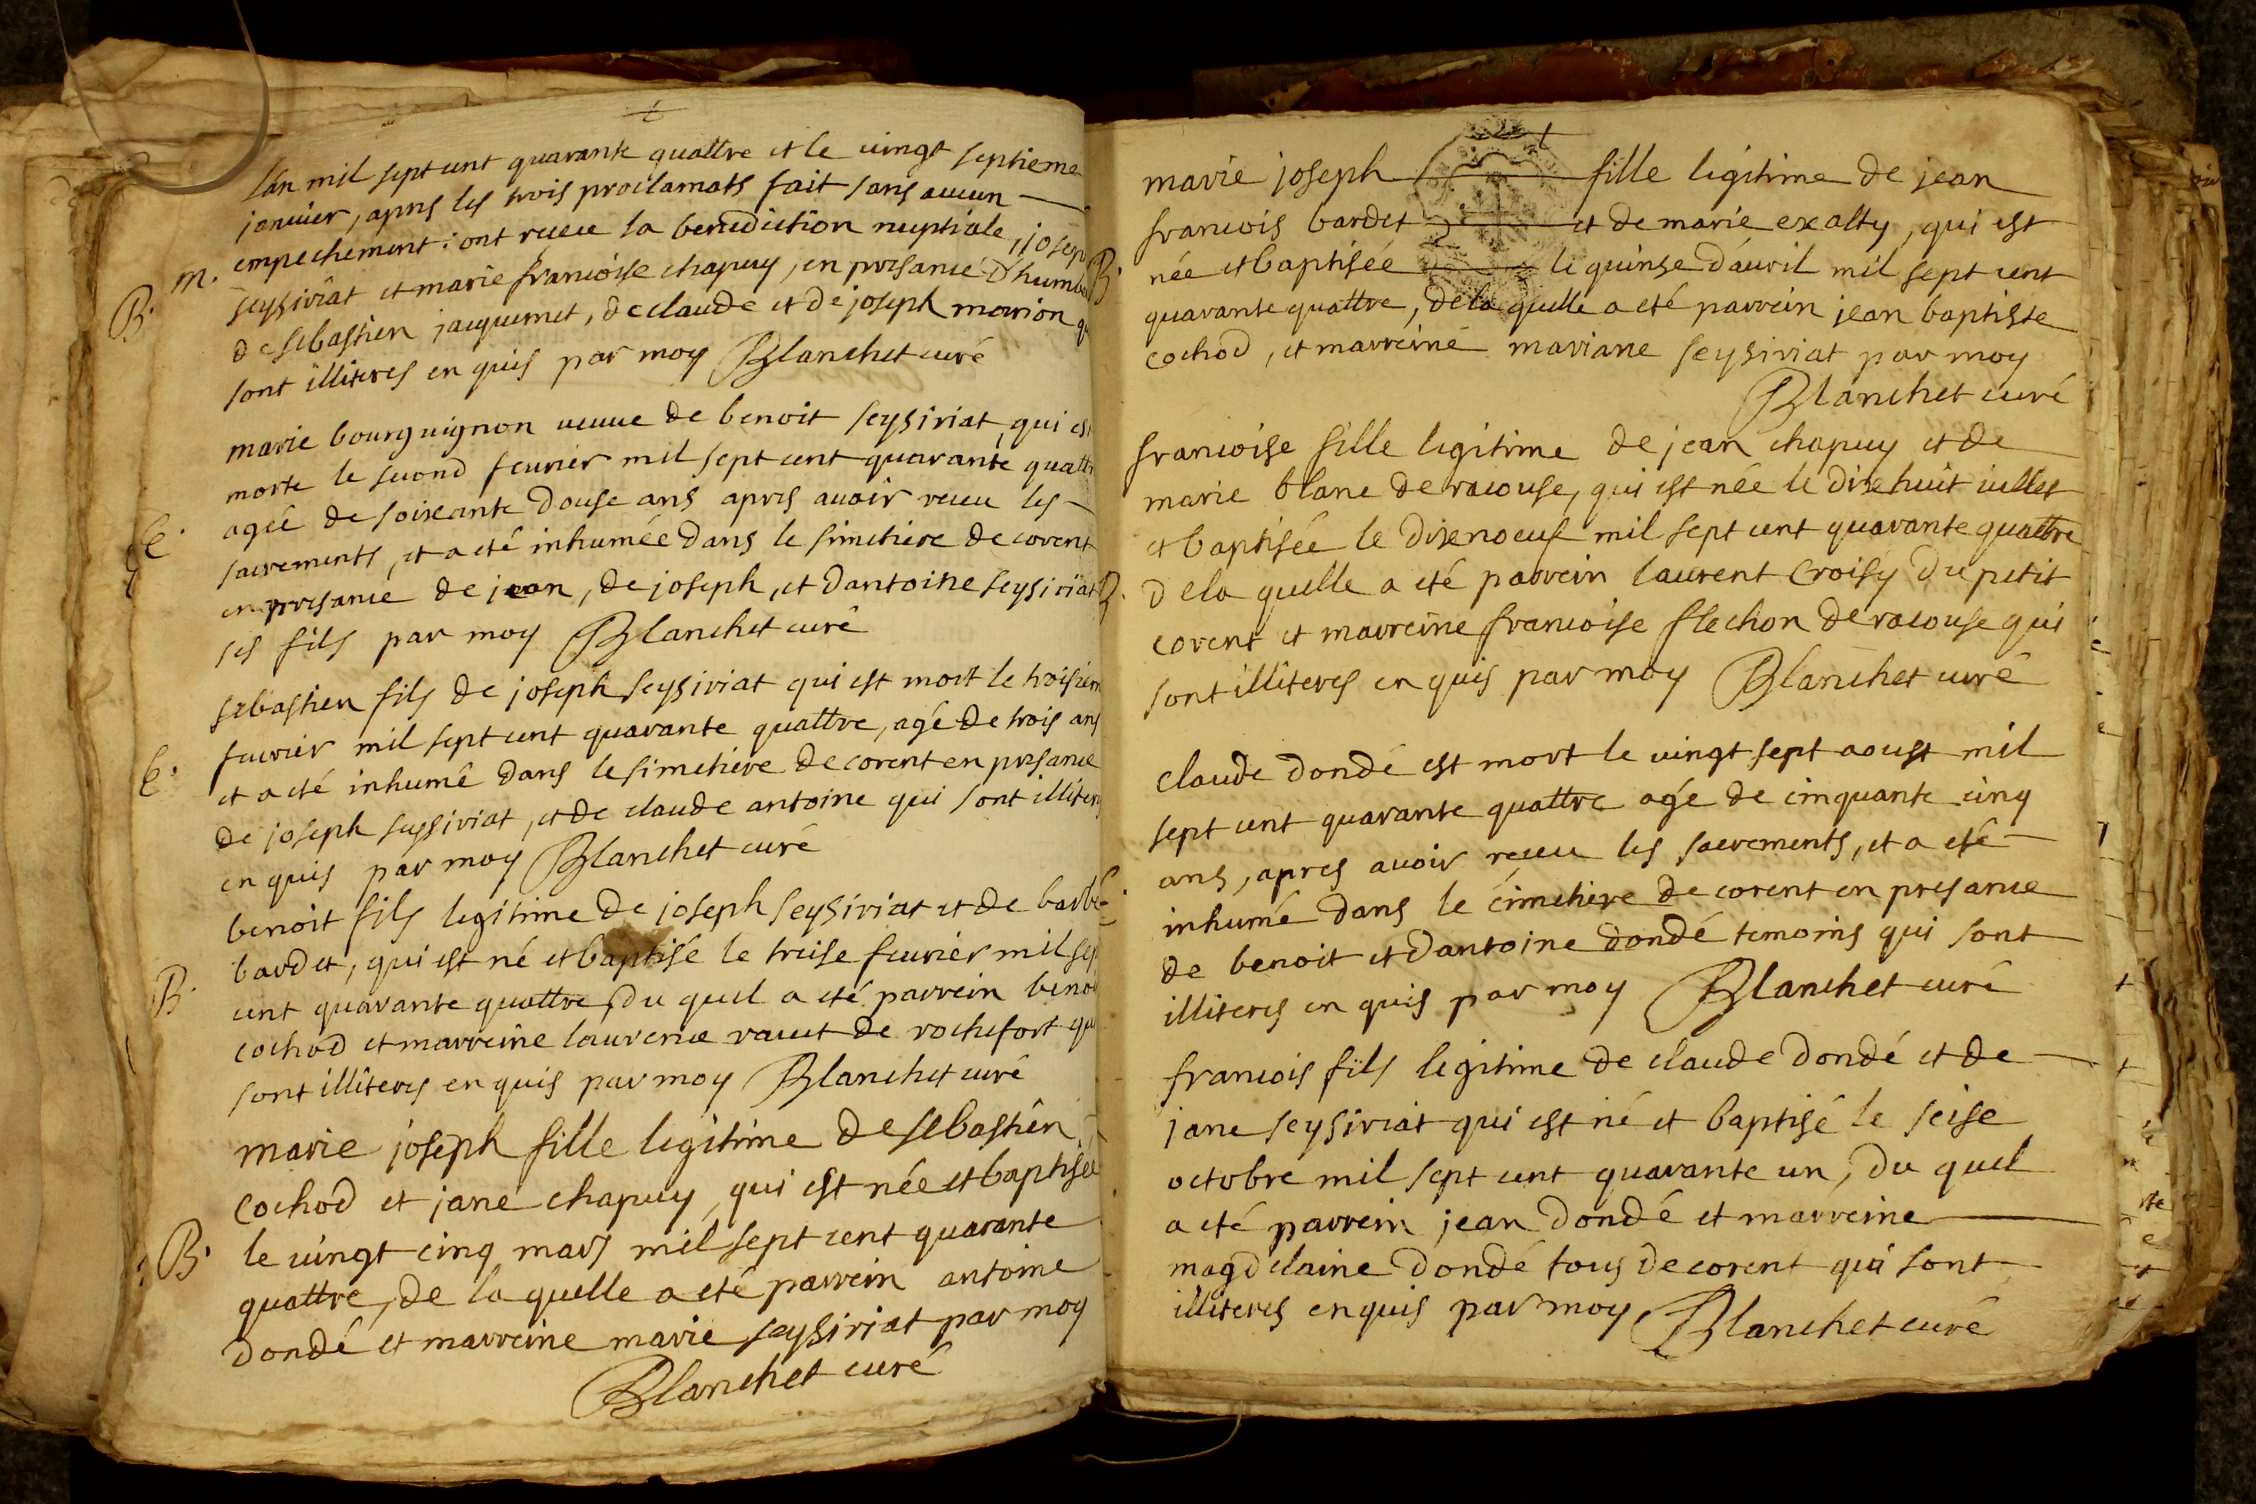 lan mil sept cent quarante quattre et le vingt septieme
janvier, apres les trois proclamats fait sans aucun
empechement : ont receu la benediction nuptiale, josep
m. seysiriat et marie francoise chapuy, en presance d'humb
B. de sebastien jacquemet, de claude et de joseph morion q
sont illiteres en quis par moy Blanchet curé
marie bourguignon veuve de benoit seysiriat, qui est
morte le second fevrier mil sept cent quarante quattr
agée de soixante douse ans apres avoir receu les
E. sacrements, et a eté inhumée dans le simetiere de corent
en presance de jean, de joseph, et dantoine seysiriat
ses fils par moy Blanchet curé
sebastien fils de joseph seysiriat qui est mort le troisiem
fevrier mil sept cent quarante quattre, agé de trois ans
E. et a eté inhumé dans le simetiere de corent en presance
de joseph seysiriat, et de claude antoine qui sont illiteres
en quis par moy Blanchet curé
benoit fils legitime de joseph seysiriat et de barbe
bardet, qui est né et baptisé le treise fevrier mil sep
B. cent quarante quattre, du quel a eté parrein benoi
cochod et marreine laurence ravet de rochefort qu
sont illiteres en quis par moy Blanchet curé
marie joseph fille legitime de sebastien
cochod et jane chapuy, qui est née et baptisée
B. le vingt cinq mars mil sept cent quarante
quattre, de la quelle a eté parrein antoine
dondé et marreine marie seysiriat par moy
Blanchet curé
marie joseph fille legitime de jean
francois bardet et de marie exalty, qui est
B. née et baptisée le quinse d'avril mil sept cent
quarante quattre, de la quelle a eté parrein jean baptiste
cochod, et marreine mariane seysiriat par moy
Blanchet curé
francoise fille legitime de jean chapuy et de
marie blanc de racouse, qui est née le dixhuit iullet
et baptisée le dixnoeuf mil sept cent quarante quattre
B. de la quelle a eté parrein laurent croisy du petit
corent et marreine francoise flechon de racouse qui
sont illiteres en quis par moy Blanchet curé
claude dondé est mort le vingt sept aoust mil
sept cent quarante quattre agé de cinquante cinq
ans, apres avoir receu les sacrements, et a eté
E. inhumé dans le cimetiere de corent en presance
de benoit et dantoine dondé temoins qui sont
illiteres en quis par moy Blanchet curé
francois fils legitime de claude dondé et de
jane seysiriat qui est né et baptisé le seise
octobre mil sept cent quarante un, du quel
a eté parrein jean dondé et marreine
magdelaine dondé tous de corent qui sont
illiteres enquis par moy Blanchet curé